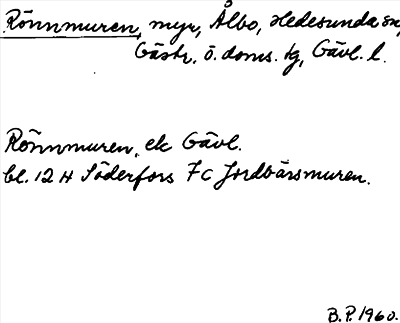 Rönnmuren, myr, Ålbo, Hedesunda sn,
Gästr. ö. doms. tg, Gävl. l.
Rönnmuren, ek Gävl.
bl. 12 H Söderfors 7 C Jordbärsmuren.
B.P. 1960.